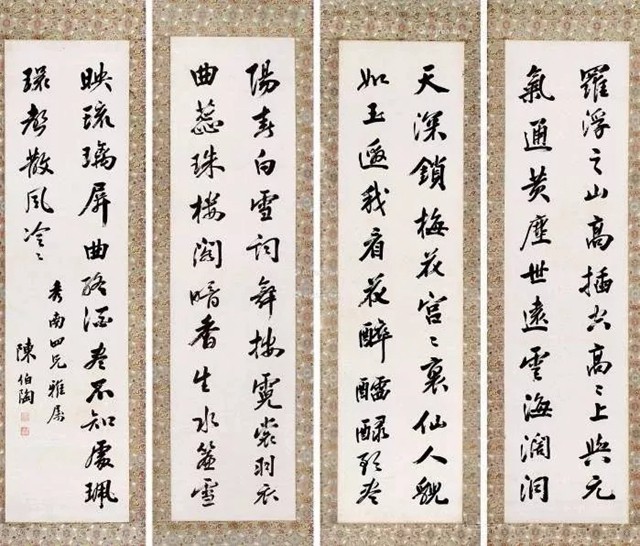 羅浮之山高插空高〻上與元
氣通黃塵世遠雲海濶洞
天深鎖梅花宮〻裏仙人貌
如玉邀我看花醉醽醁歌盡
陽春白雪詞舞按霓裳羽衣
曲蕊珠樓閣暗香生水簾雪
映琉璃屏曲終酒盡不知處珮
環聲散風泠〻
秀南四兄雅屬
陳伯陶